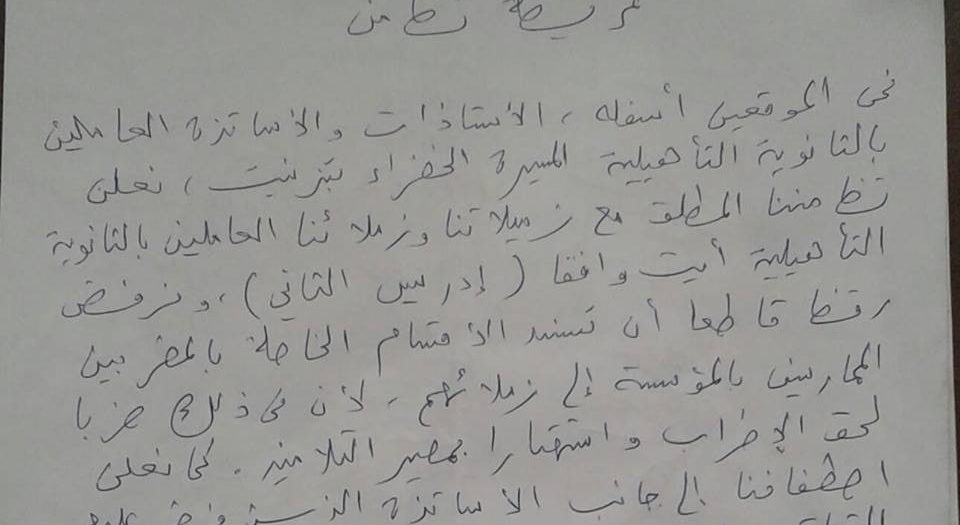 عريضة تضامن
نحن الموقعين أسفله، الأستاذات والأساتذة العاملين
بالثانوية التأهيلية المسيرة الخضراء بتزنيت، نعلن
تضامننا المطلق مع زميلاتنا وزملائنا العاملين بالثانوية
التأهيلية أيت وافقا (إدريس الثاني)، ونرفض
رفضا قاطعا أن تسند الأقسام الخاصة بالمضربين
الممارسين بالمؤسسة إلى زملائهم، لأن في ذلك ضربا
لحق الإضراب واستهتارا بمصير التلاميذ. كما نعلن
اصطفافنا إلى جانب الأساتذة الذين